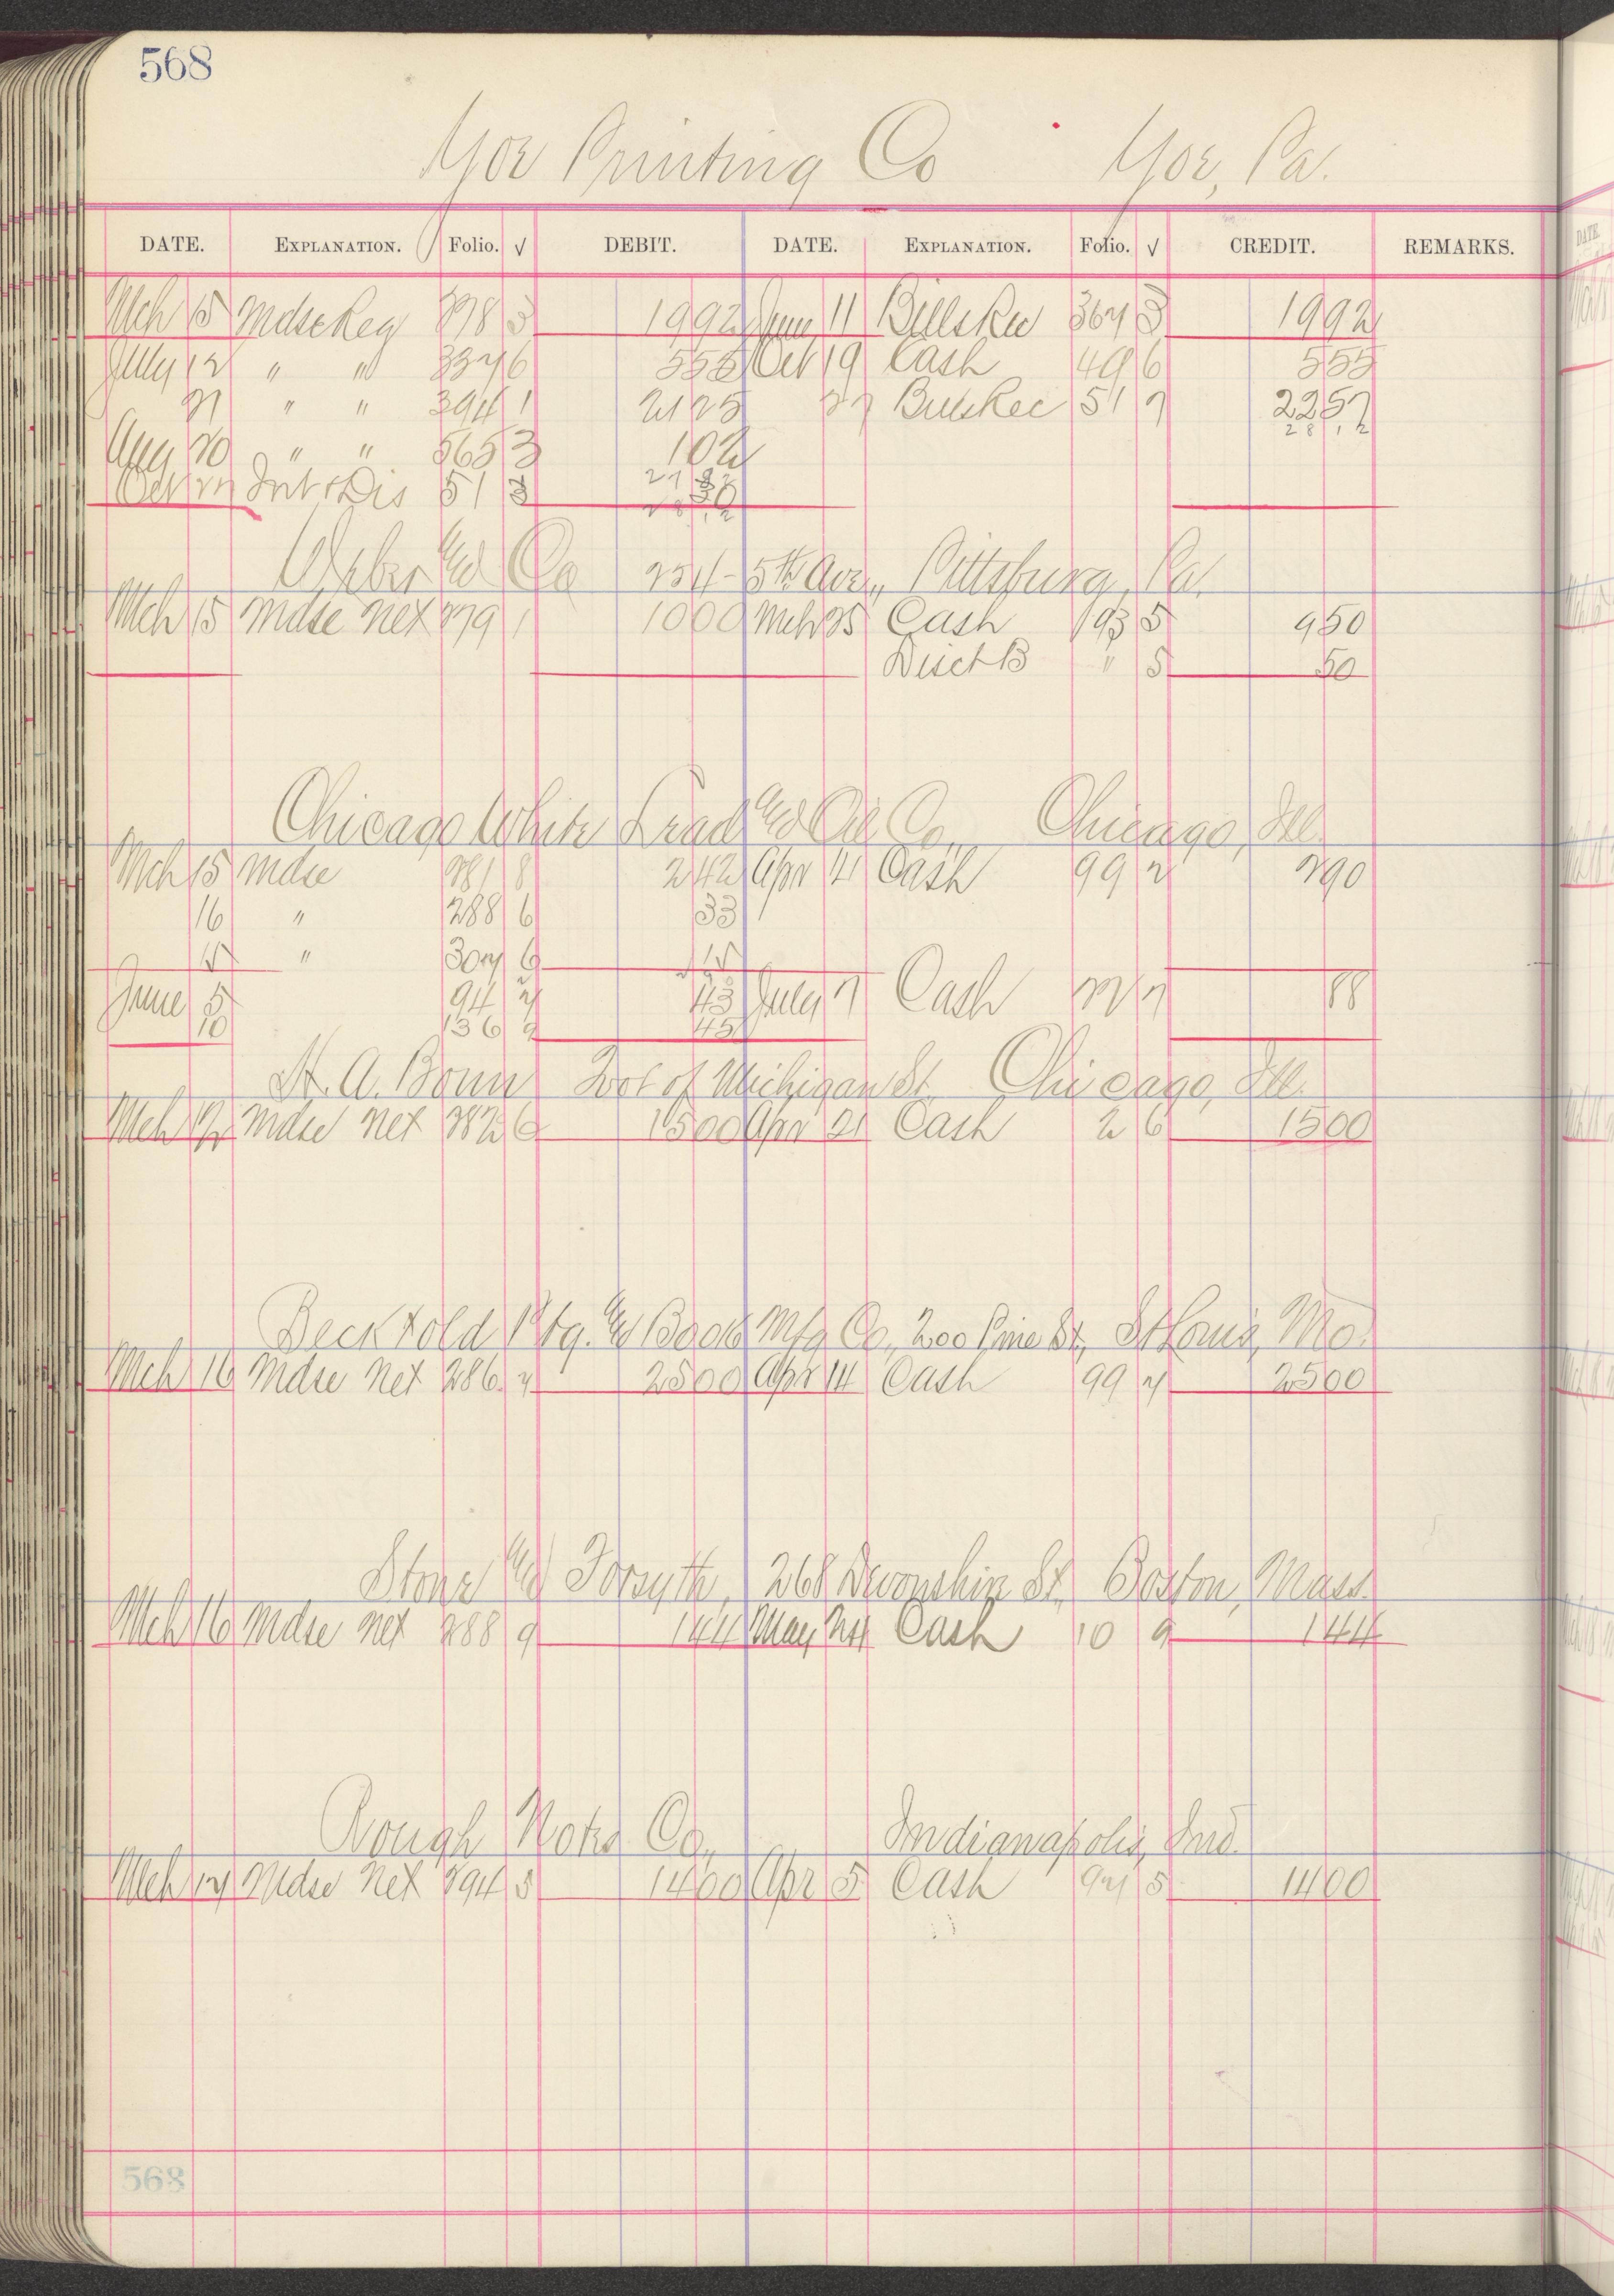 568
Printing Co Pa.
DATE. EXPLANATION. Folio. √ DEBIT. DATE. EXPLANATION. Folio. √ CREDIT. REMARKS.
Mch 15 Mdse 5 1992 11 1992
July 12 " " 6 555 Oct 19 Cash 49 6 555
" " 394 1 2125 51 7 2257
Aug " " 565 3 102
Int & Dis 51 3
Weber & Co 5th Ave., Pittsburg, Pa.
Mch 15 Mdse Net 1 1000 Mch 25 Cash 193 5 950
Disct B " 5 50
Chicago White Lead & Oil Co., Chicago, Ill.
Mch 15 Mdse 8 242 Apr 14 Cash 99 2 290
16 " 288 6 33
" 6 15
June 5 94 2 43 July 7 Cash 7 88
10 136 9 45
Bonn Foot of Michigan St. Chicago, Ill.
Mch Mdse Net 282 6 1500 Apr 21 Cash 2 6 1500
Becktold Ptg. & Book Mfg Co., 200 Pine St, St Louis, Mo.
Mch 16 Mdse Net 286 2 2500 Apr 14 Cash 99 2 2500
Stone & Forsyth, 268 Devonshire St. Boston, Mass
Mch 16 Mdse Net 288 9 144 May 24 Cash 10 9 144
Rough Notes Co., Indianapolis, Ind.
Mch 17 Mdse Net 294 5 1400 Apr 5 Cash 5 1400
568